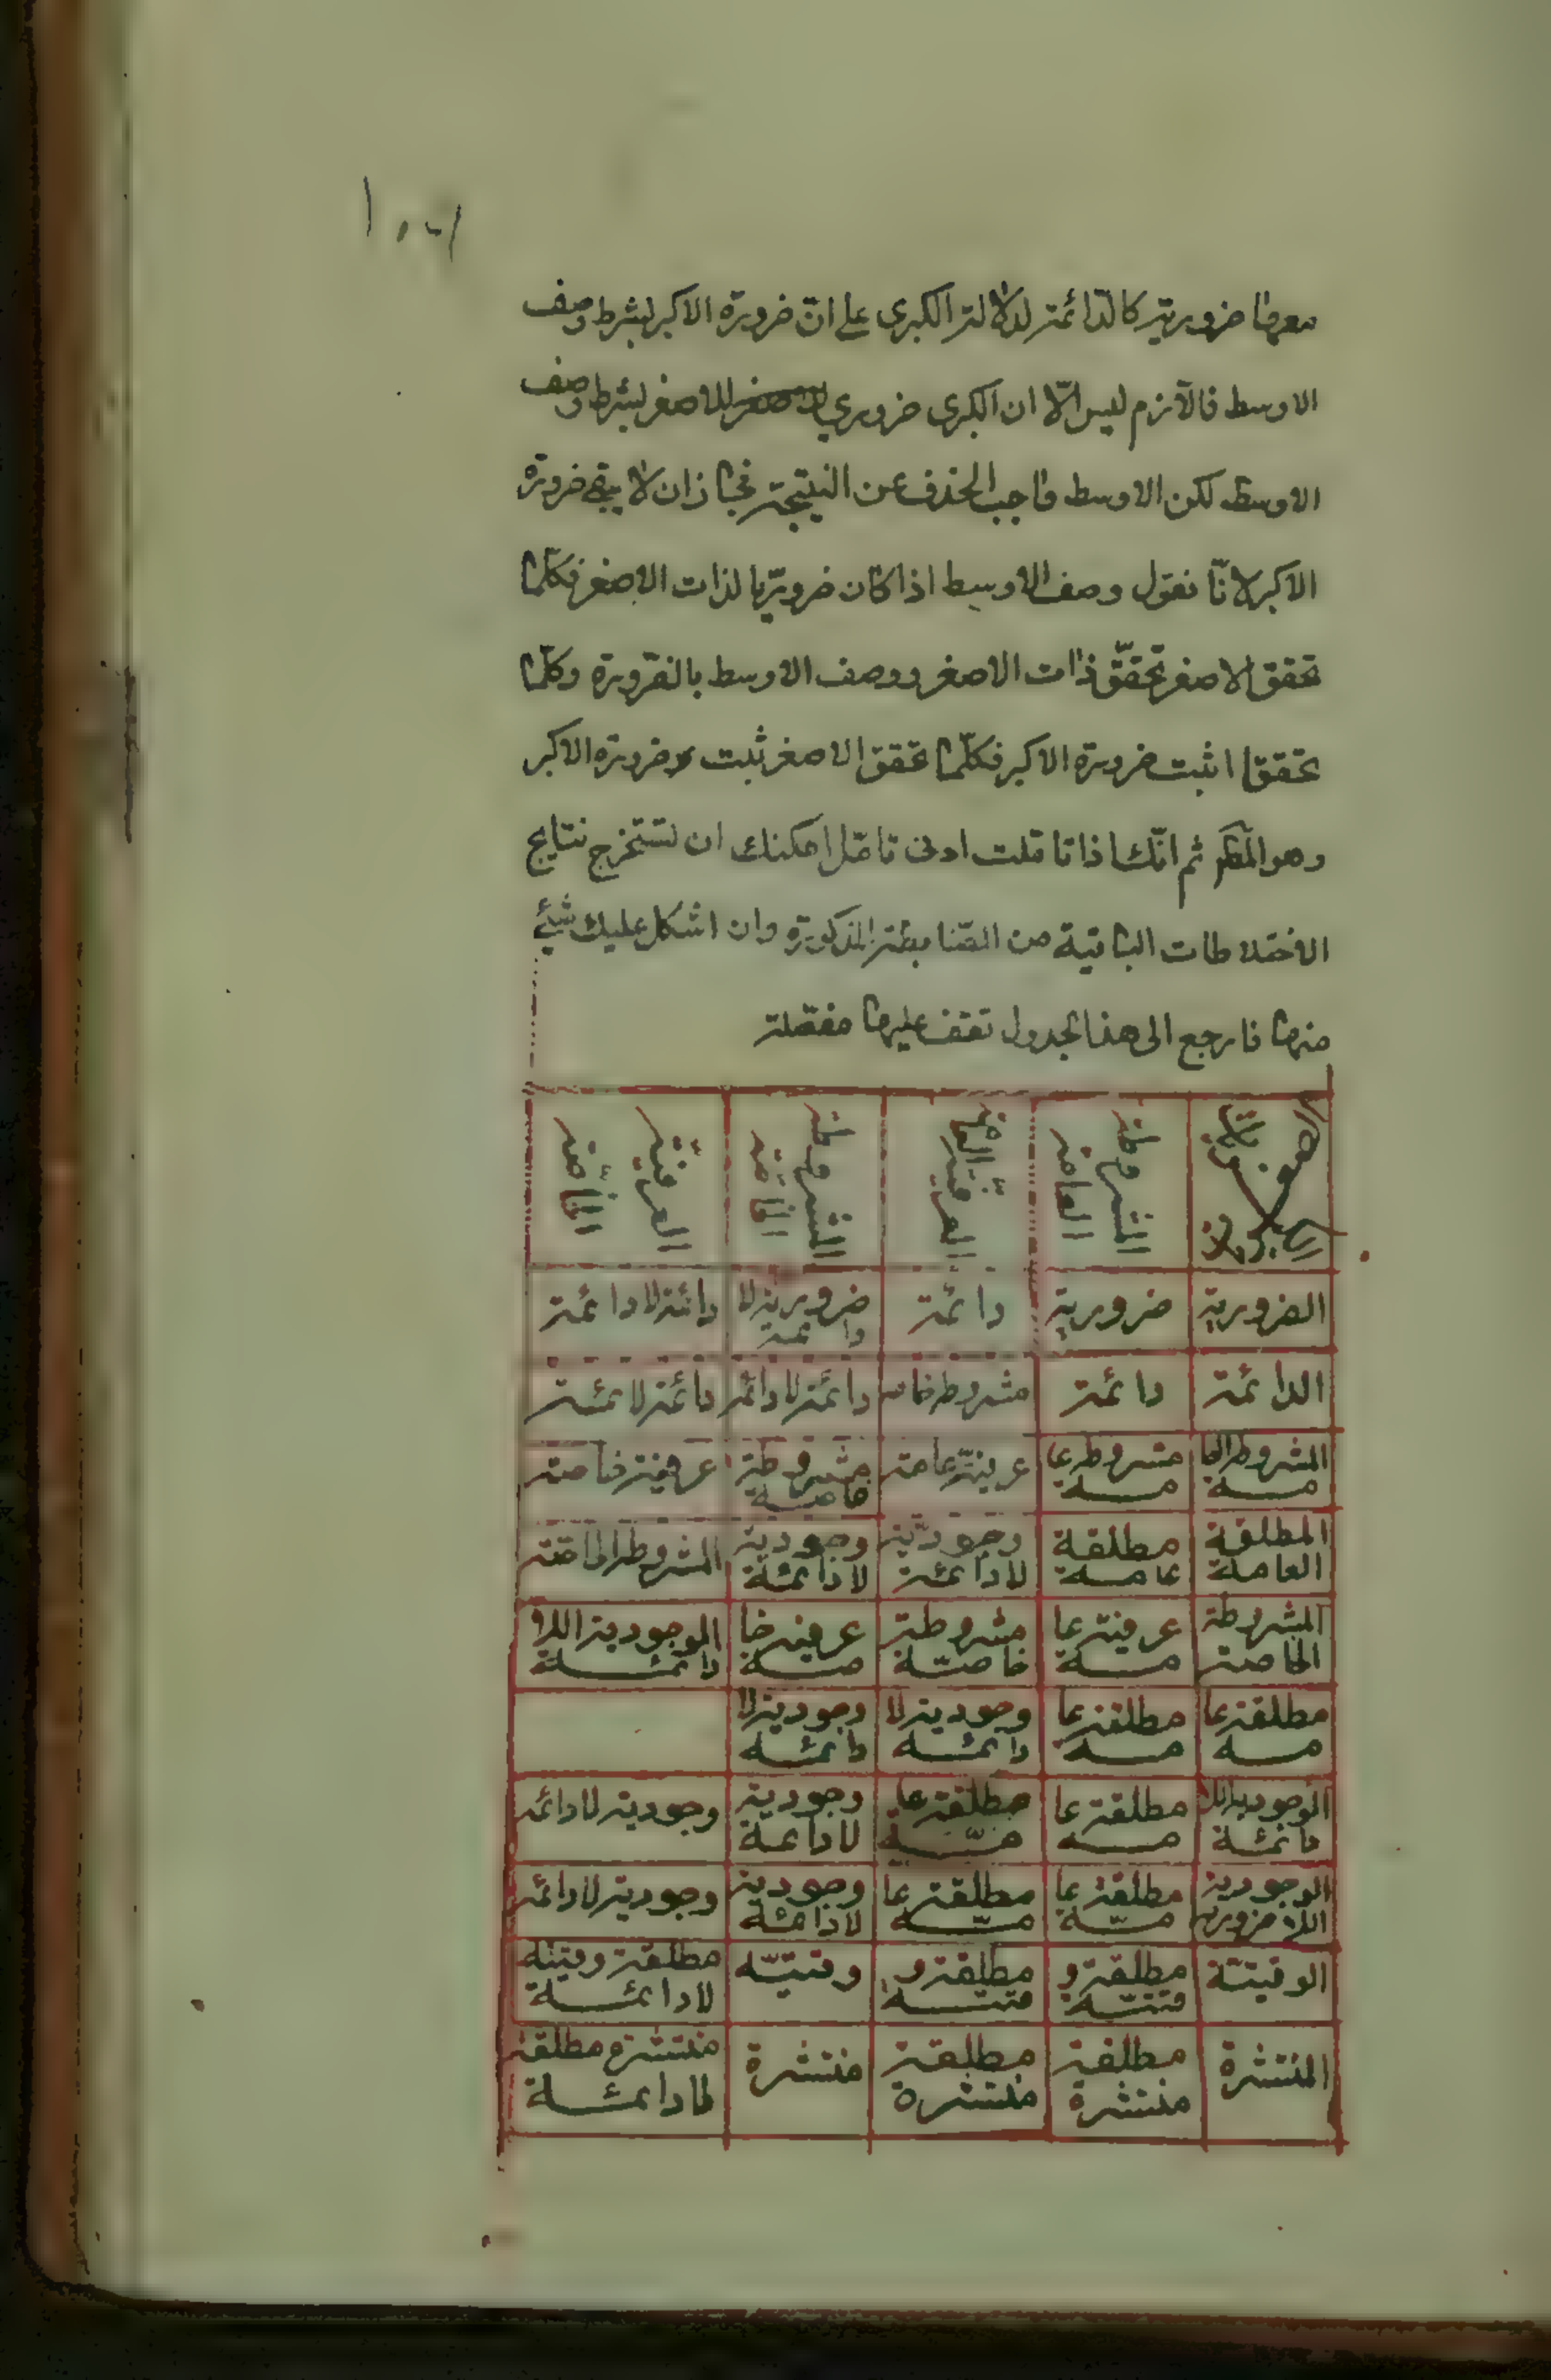 معها ضرورية كالدائمة لدلالة الكبرى على ان ضرورة الاكبر بشرط وصف
الاوسط فاللازم ليس الّا ان الكبرى ضروري للاصغر بشرط وصف
الاوسط لكن الاوسط واجب الحذف عن النتيجة فجاز ان لا يبقى ضرورة
الاكبر لانّا نقول وصف الاوسط اذا كان ضروريّا لذات الاصغر فكلّما
تحقق الاصغر تحقّق ذات الاصغر ووصف الاوسط بالضّرورة وكلّما
تحققا ثبت ضرورة الاكبر فكلّما تحقق الاصغر ثبت ضرورة الاكبر
وهو المط ثم انّك اذا تاملت ادنى تامّل امكنك ان تستخرج نتايج
الاختلاطات الباقية من الضّابطة المذكورة وان اشكل عليك شيئ
منها فارجع الى هذا الجدول تقف عليها مفصّلة
المشروطة العامة العرفيّة العامة المشروطة الخاصّة العرفيّة الخاصّة
الضرورية ضرورية دائمة ضرورية لا دائمة دائمة لا دائمة
الدائمة دائمة مشروطه خاصه دائمة لا دائمه دائمة لا ئمئة
المشروطه العامة مشروطه عامة عرفيّة عامة مشروطة خاصة عرفية خاصة
المطلقة العامة مطلقة عامة وجوديّة لا دائمة وجودية لا دائمة المشروطه الخاصة
المشروطة الخاصة عرفية عامة مشروطة خاصّة عرفية خاصة الوجودية اللا دائمة
مطلقة عامه مطلقة عامه وجودية لا دائمه وجودية لا دائمه
الوجودية اللا دائمة مطلقة عامه مطلقة عامّة وجودية لا دائمة وجودية لا دائمه
الوجودية اللا ضرورية مطلقة عامّة مطلقة عامّة وجودية لا دائمة وجودية لا دائمه
الوقتيّة مطلقة وقتيّة مطلقة وقتية وقتيّه مطلقة وقتية لا دائمة
المنتشرة مطلقة منتشرة مطلقة منتشرة منتشرة منتشرة مطلقة لا دائمة